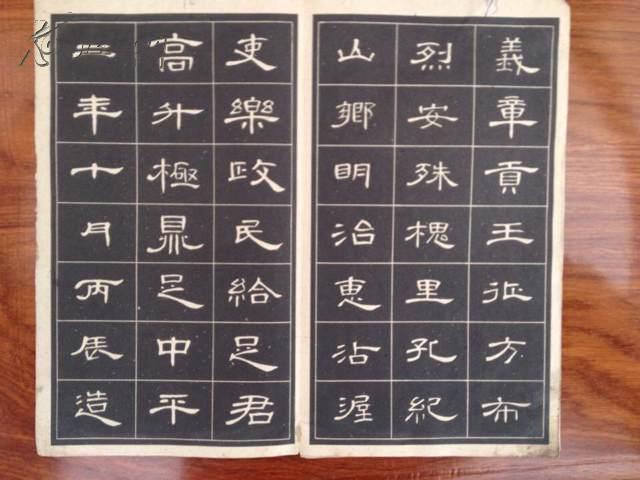 義章貢王征方布
烈安殊槐里孔紀
山鄉明治惠沾渥
吏樂政民給足君
高升極鼎足中平
二年十月丙辰造